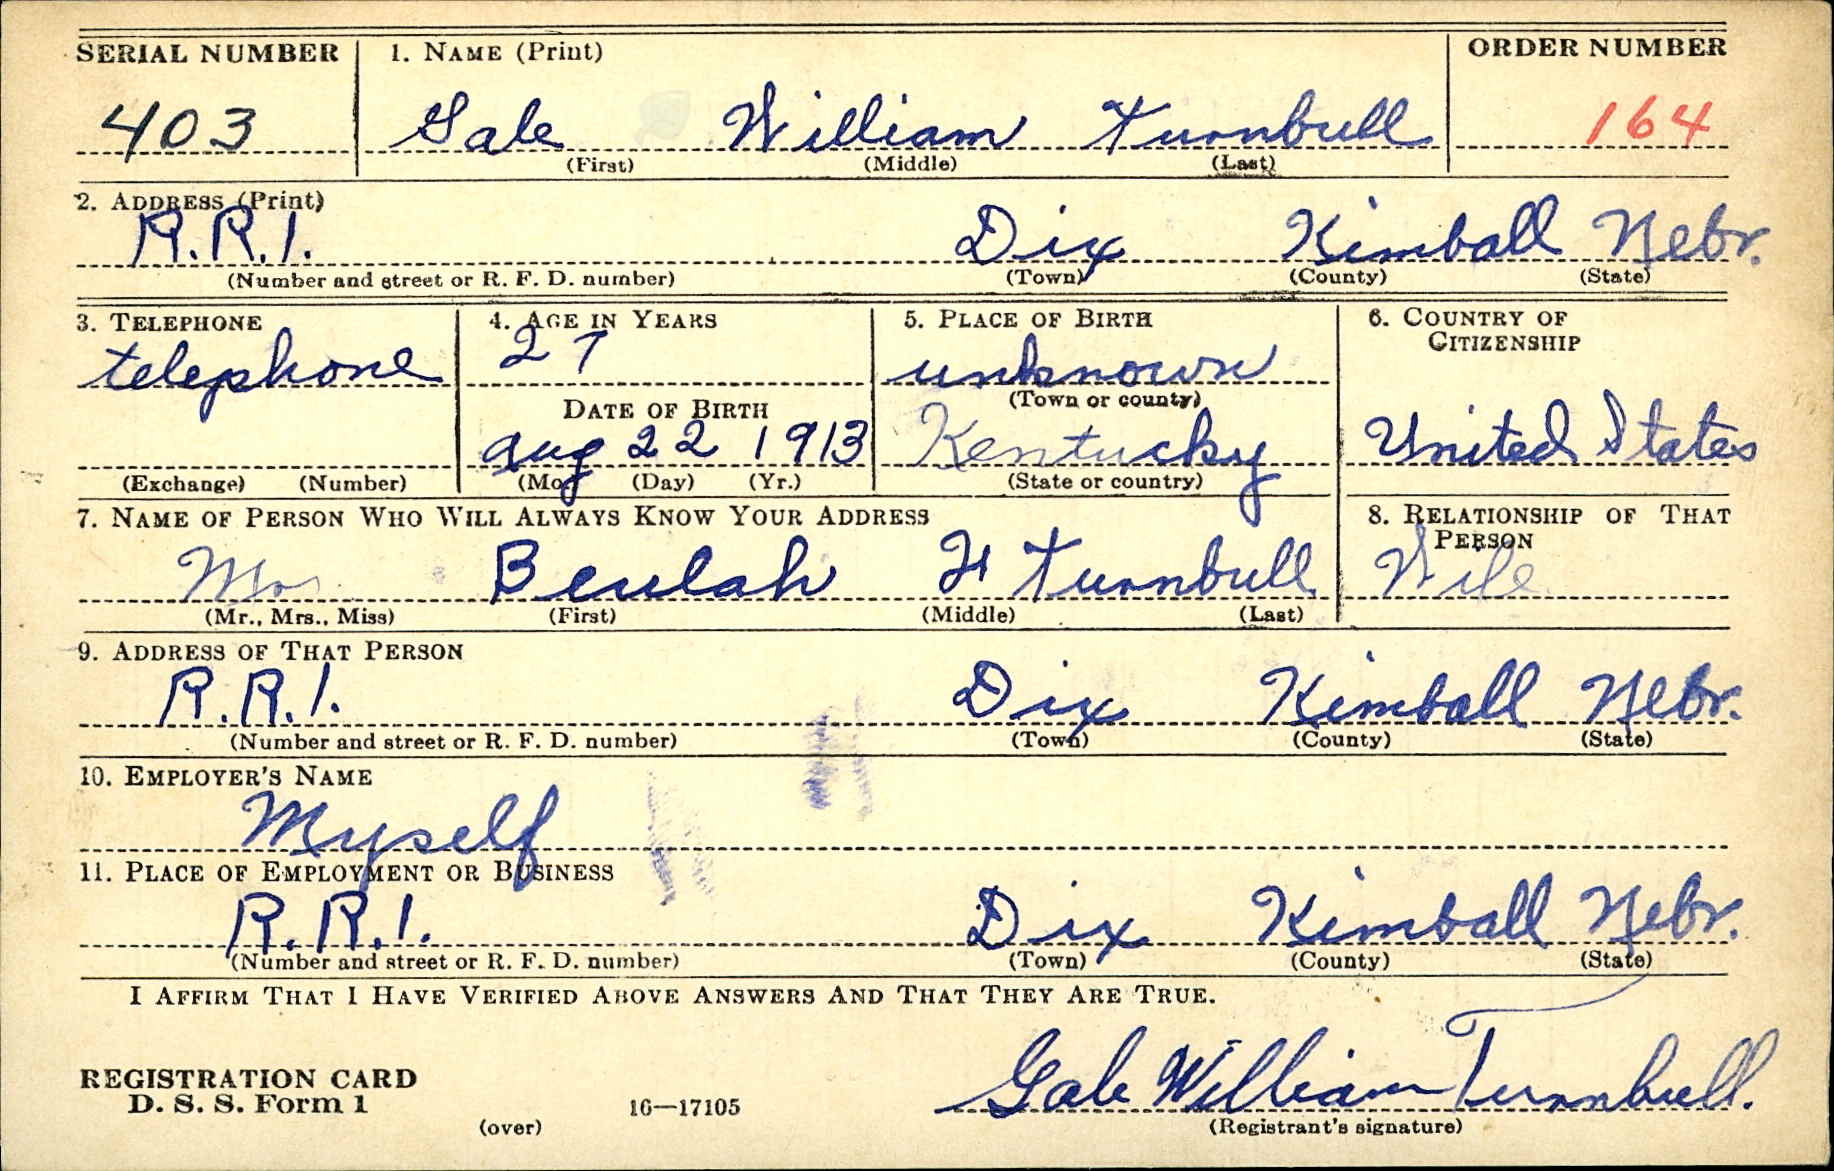 SERIAL NUMBER 1. NAME (Print) ORDER NUMBER
403 Gale William Turnbull 164
(First) (Middle) (Last)
2. ADDRESS (Print)
R.R.1. Dix Kimball Nebr.
(Number and street or R. F. D. number) (Town) (County) (State)
3. TELEPHONE 4. AGE IN YEARS 5. PLACE OF BIRTH 6. COUNTRY OF CITIZENSHIP
telephone 27 unknown
(Town or county)
DATE OF BIRTH
Aug 22 1913 Kentucky United States
(Exchange) (Number) (Mo.) (Day) (Yr.) (State or country)
7. NAME OF PERSON WHO WILL ALWAYS KNOW YOUR ADDRESS 8. RELATIONSHIP OF THAT PERSON
Mrs Beulah H Turnbull Wife
(Mr., Mrs., Miss) (First) (Middle) (Last)
9. ADDRESS OF THAT PERSON
R.R.1. Dix Kimball Nebr.
(Number and street or R. F. D. number) (Town) (County) (State)
10. EMPLOYER'S NAME
Myself
11. PLACE OF EMPLOYMENT OR BUSINESS
R.R.1. Dix Kimball Nebr.
(Number and street or R. F. D. number) (Town) (County) (State)
I AFFIRM THAT I HAVE VERIFIED ABOVE ANSWERS AND THAT THEY ARE TRUE.
REGISTRATION CARD
D. S. S. Form 1 Gale William Turnbull.
(over) 16—17105 (Registrant's signature)